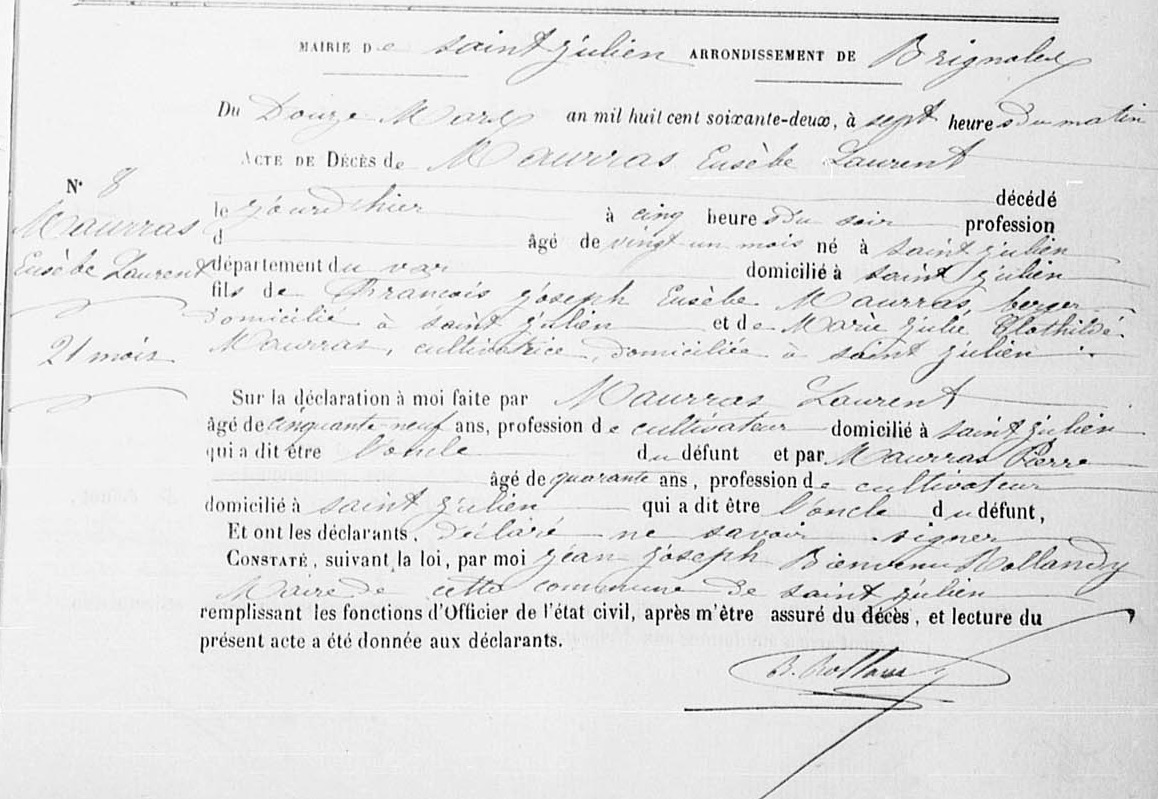 MAIRIE De saint julien ARRONDISSEMENT DE Brignoles
Du Douze Mars an mil huit cent soixante-deux, à sept heures du matin
ACTE DE DÉCÈS de Maurras Eusèbe Laurent
N° 8
décédé
Maurras
le jourd'hier à cinq heures du soir profession
d âgé de vingt un mois né à saint julien
Eusèbe Laurent
département du var domicilié à saint julien
fils de François joseph Eusèbe Maurras, berger
domicilié à saint julien et de Marie julie Clothilde
21 mois
Maurras, cultivatrice, domiciliée à saint julien
Sur la déclaration à moi faite par Maurras Laurent
âgé de cinquante neuf ans, profession de cultivateur domicilié à saint julien
qui a dit être l'oncle du défunt et par Maurras Pierre
âgé de quarante ans, profession de cultivateur
domicilié à saint julien qui a dit être l'oncle du défunt,
Et ont les déclarants, déclaré ne savoir signer
CONSTATÉ, suivant la loi, par moi jean joseph Bienvenu Rollandy
Maire de cette commune de saint julien
remplissant les fonctions d'Officier de l'état civil, après m'être assuré du décès, et lecture du
présent acte a été donnée aux déclarants.